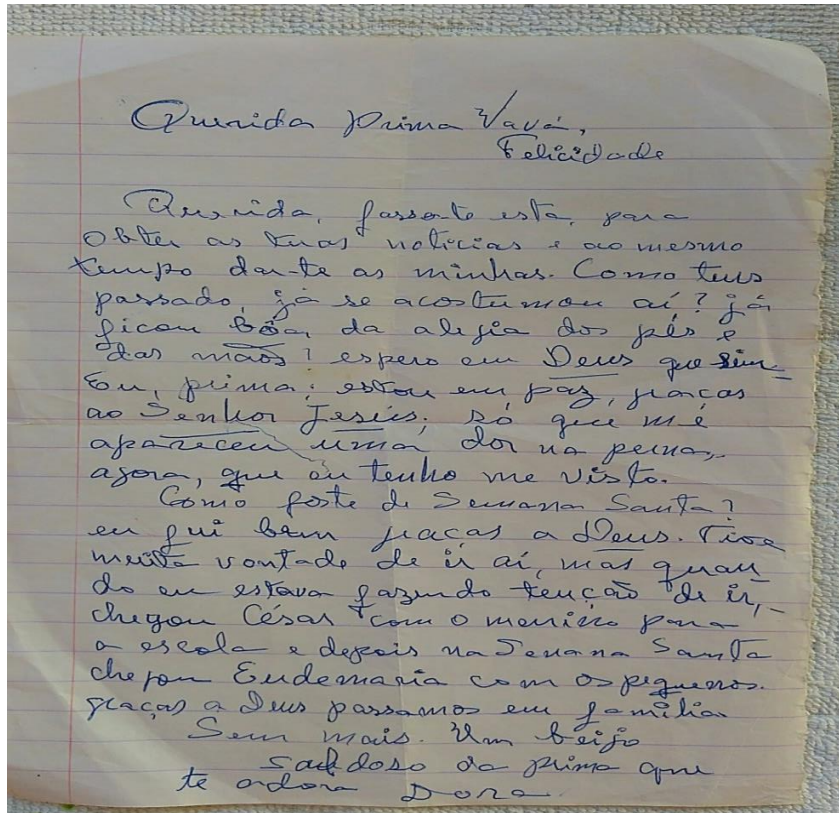 Querida prima Vavá,
Felicidade
Querida, faço-te esta, para
obter as tuas noticias e ao mesmo
tempo dar-te as minhas. Como tens
passado, já se acostumou aí? já
ficou bôa, da alegia dos pés e
das mãos? espero em Deus que sim-
Eu, prima; estou em paz, graças
ao Senhor Jesús; só que me
apareceu uma dor na perna,
agora, que eu tenho me visto.
Como foste de Semana Santa?
eu fui bem graças a Deus. Tive
muita vontade de ir aí, mas quan
do eu estava fazendo tenção de ir,-
chegou César com o menino para
a escola e depois na Semana Santa
chegou Eudemaria com os pequenos.
graças a Deus passamos em familia
Sem mais. Um beijo
saudoso da prima que
te adora Dora